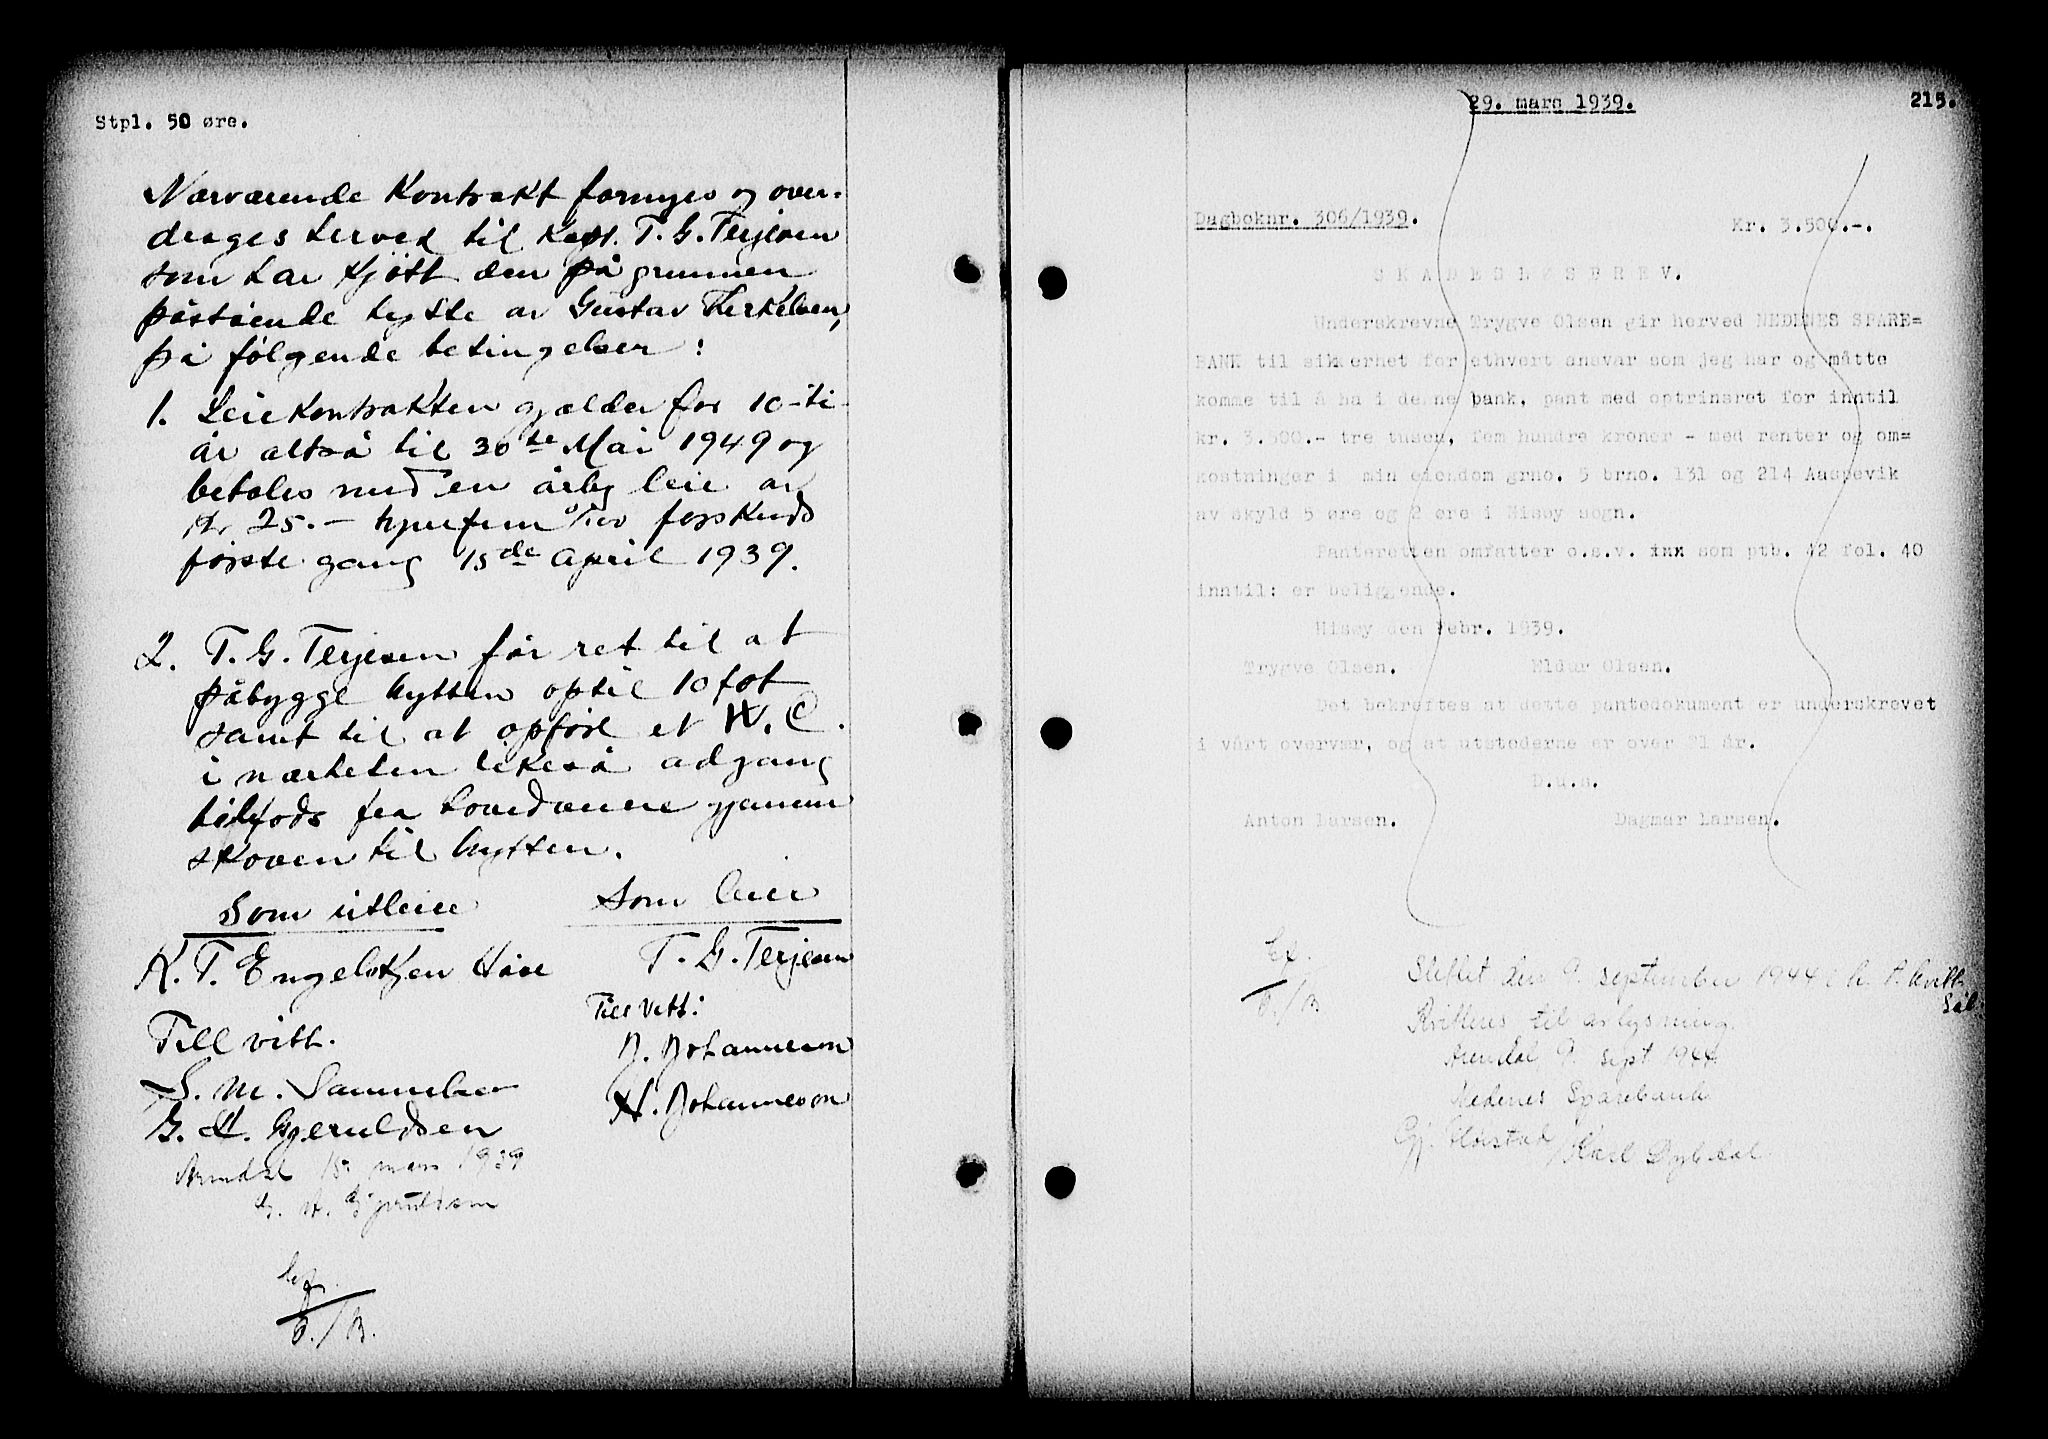 Stpl. 50 øre.
Nærværende Kontrakt fornyes og over-
drages herved til Kapt. T. G. Terjesen
som har kjøtt den på grunnen
påstående hytte av Gustav Terkelsen,
på følgende betingelser :
1. Leiekontrakten gjælder for 10 - ti -
år altså til 30te Mai 1949 og
betales med en årlig leie av
Kr 25.- tjuefem 0/100 forskudd
første gang 15de April 1939.
2. T. G. Terjesen får ret til at
påbygge hytten optil 10 fot
samt til at opføre et W. C.
i nærheten likeså adgang
tilfods fra hovedveiene gjennem
skoven til hytten.
Som utleier
Som leier
K. T. Engelsen
T. G. Terjesen
Till vitt.
Till vitt:
J. Johannesson
S. M. Samuelsen
H. Johannesson
G. H. Gjeruldsen
Arendal 15. mars 1939
G. H. Gjeruldsen
29. mars 1939.
215.
Dagboknr. 306/1939.
Kr. 3.500.-.
S K A D E S L Ø S B R E V.
Underskrevne Trygve Olsen gir herved NEDENES SPARE=
BANK til sikkerhet for ethvert ansvar som jeg har og måtte
komme til å ha i denne bank, pant med optrinsret for inntil
kr. 3.500.- tre tusen, fem hundre kroner - med renter og om=
kostninger i min eiendom grno. 5 brno. 131 og 214 Aaspevik
av skyld 5 øre og 2 øre i Hisøy sogn.
Panteretten omfatter o.s.v. som ptb. 42 fol. 40
inntil: er beliggende.
Hisøy den Febr. 1939.
Trygve Olsen.
Eldur Olsen.
Det bekreftes at dette pantedokument er underskrevet
i vårt overvær, og at utstederne er over 21 år.
D.u.s.
Anton Larsen.
Dagmar Larsen.
Slettet den 9. september 1944 i h. t. kvitt.
Kvitteres til avlysning.
Arendal 9. sept 1944.
Nedenes Sparebank
Gj. / Karl Dybdal